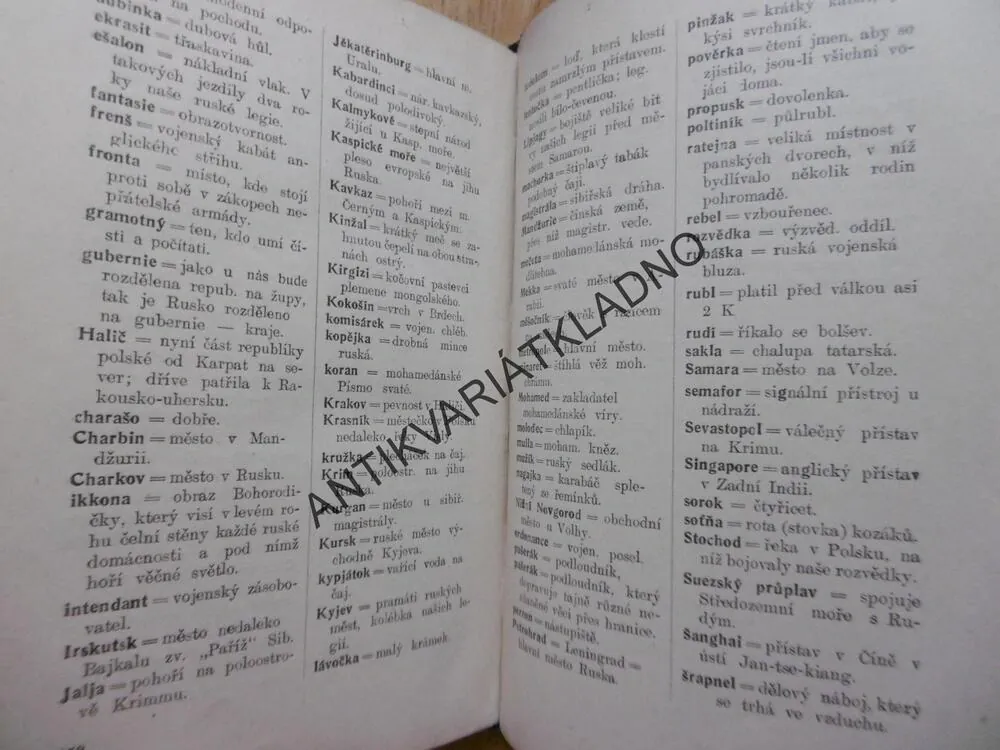 na pochodu.
dubová hůl.
ekrasit = třaskavina.
ešalon = nákladní vlak. V
takových jezdily dva ro-
ky naše ruské legie.
fantasie = obrazotvornost.
frenš = vojenský kabát an-
glického střihu.
fronta = místo, kde stojí
proti sobě v zákopech ne-
přátelské armády.
gramotný = ten, kdo umí čí-
sti a počítati.
gubernie = jako u nás bude
rozdělena repub. na župy,
tak je Rusko rozděleno
na gubernie — kraje.
Halič = nyní část republiky
polské od Karpat na se-
ver; dříve patřila k Ra-
kousko-uhersku.
charašo = dobře.
Charbin = město v Man-
džurii.
Charkov = město v Rusku.
ikkona = obraz Bohorodi-
čky, který visí v levém ro-
hu čelní stěny každé ruské
domácnosti a pod nímž
hoří věčné světlo.
intendant = vojenský zásobo-
vatel.
Irskutsk = město nedaleko
Bajkalu zv. „Paříž" Sib.
Jalja = pohoří na poloostro-
vě Krimmu.
Jékatěrinburg = hlavní m.
Uralu.
Kabardinci = nár. kavkazský,
dosud polodivoký.
Kalmykové = stepní národ
žijící u Kasp. moře.
Kaspické moře = největší
pleso evropské na jihu
Ruska.
Kavkaz = pohoří mezi m.
Černým a Kaspickým.
Kinžal = krátký meč se za-
hnutou čepelí na obou stra-
nách ostrý.
Kirgizi = kočovní pastevci
plemene mongolského.
Kokošín = vrch v Brdech.
komisárek = vojen. chléb.
kopějka = drobná mince
ruská.
koran = mohamedánské
Písmo svaté.
Krakov = pevnost v Haliči.
Krasník = městečko v Polsku
nedaleko řeky
kružka = plecháček na čaj.
Krim = poloostr. na jihu
Ruska.
Kurgan = město u sibiř.
magistrály.
Kursk = ruské město vý-
chodně Kyjeva.
kypjátok = vařící voda na
čaj.
Kyjev = pramáti ruských
měst, kolébka našich le-
gií.
lávočka = malý krámek.
loď, která klestí
cestu zamrzlým přístavem.
= pentlička; leg.
nosili bílo-červenou.
Lipjagy = bojiště veliké bit
vy našich legií před mě-
stem Samarou.
machorka = štiplavý tabák
podobný čaji.
magistrála = sibiřská dráha.
Mandžurie = čínská země,
přes níž magistr. vede.
mečeta = mohamedánská mo-
dlitebna.
Mekka = svaté město
rabii.
člověk s rancem
hlavní město.
štíhlá věž moh.
chrámu.
Mohamed = zakladatel
mohamedánské víry.
molodec = chlapík.
mulla = moham. kněz.
mužik = ruský sedlák.
nagajka = karabáč sple-
tený se řemínků.
Nižní Novgorod = obchodní
město u Volhy.
ordonance = vojen. posel.
pašerák = podloudník,
pašerák = podloudník, který
dopravuje tajně různé ne-
celné věci přes hranice.
perron = nástupiště.
Petrohrad = Leningrad =
hlavní město Ruska.
pinžak = krátký kabát,
kýsi svrchník.
pověrka = čtení jmen, aby se
zjistilo, jsou-li všichni vo-
jáci doma.
propusk = dovolenka.
poltiník = půlrubl.
ratejna = veliká místnost v
panských dvorech, v níž
bydlívalo několik rodin
pohromadě.
rebel = vzbouřenec.
rozvědka = výzvěd. oddíl.
rubáška = ruská vojenská
bluza.
rubl = platil před válkou asi
2 K
rudí = říkalo se bolšev.
sakla = chalupa tatarská.
Samara = město na Volze.
semafor = signální přístroj u
nádraží.
Sevastopol = válečný přístav
na Krimu.
Singapore = anglický přístav
v Zadní Indii.
sorok = čtyřicet.
sotňa = rota (stovka) kozáků.
Stochod = řeka v Polsku, na
níž bojovaly naše rozvědky.
Suezský průplav = spojuje
Středozemní moře s Ru-
dým.
Šanghai = přístav v Číně v
ústí Jan-tse-kiang.
šrapnel = dělový náboj, který
se trhá ve vzduchu.
ANTIKVARIÁTKLADNO